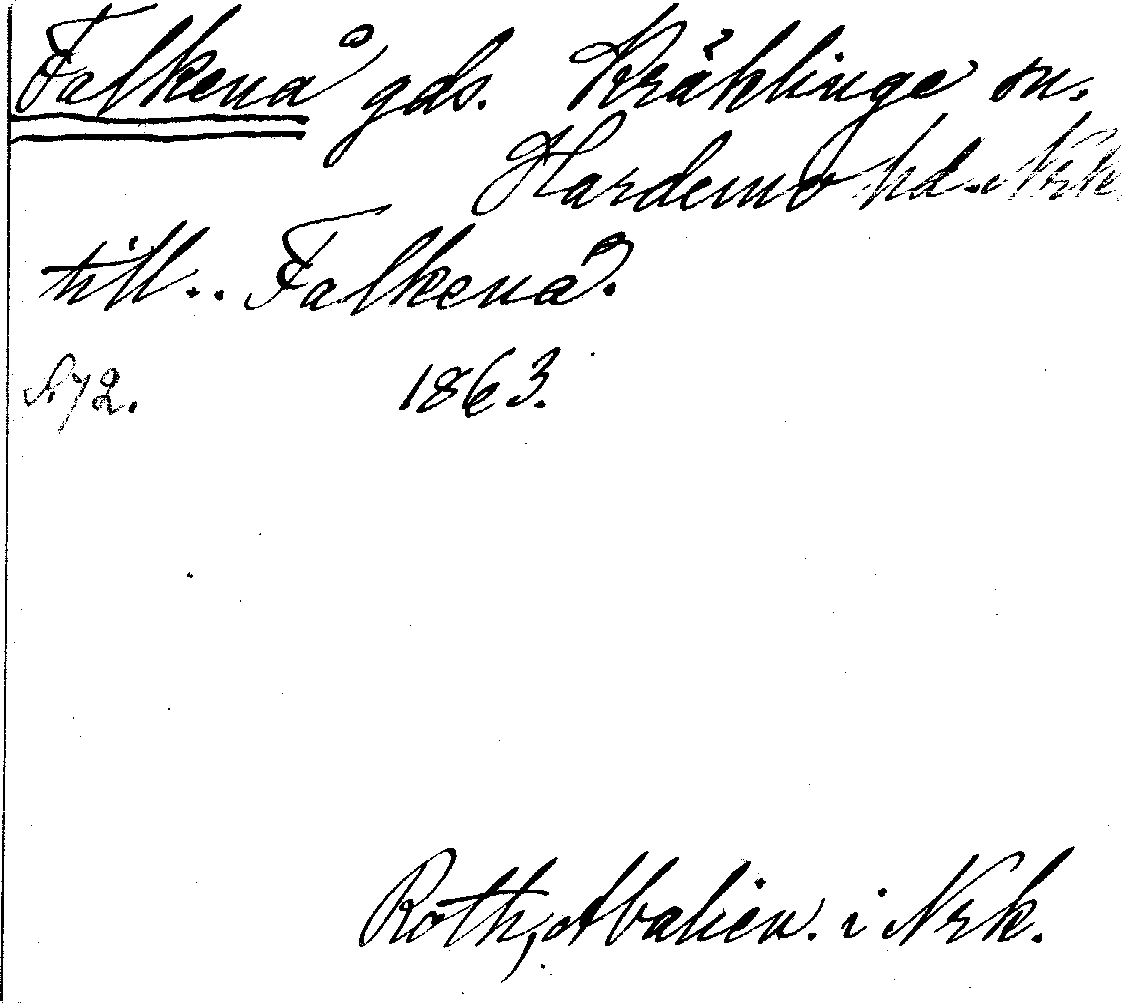 Falkenå gds. Kräklinge sn.
Hardemo hd. Nrk
till.. Falkenå.
S. 72. 1863.
Roth, Abalien. i Nrk.